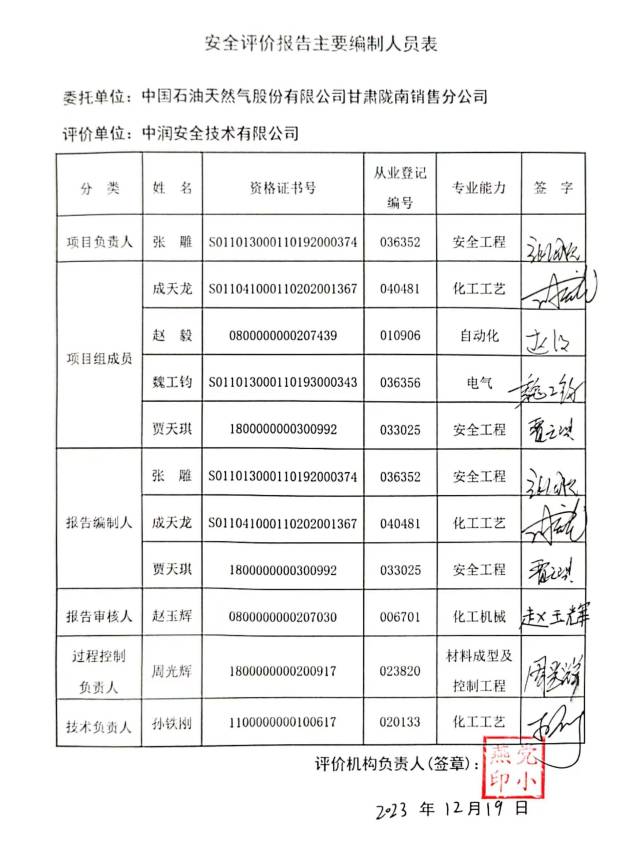 安全评价报告主要编制人员表
委托单位：中国石油天然气股份有限公司甘肃陇南销售分公司
评价单位：中润安全技术有限公司
分 类 姓 名 资格证书号 从业登记编号 专业能力 签 字
项目负责人 张 雕 S011013000110192000374 036352 安全工程
项目组成员 成天龙 S011041000110202001367 040481 化工工艺
赵 毅 0800000000207439 010906 自动化
魏工钧 S011013000110193000343 036356 电气 魏工钧
贾天琪 1800000000300992 033025 安全工程 贾天琪
报告编制人 张 雕 S011013000110192000374 036352 安全工程
成天龙 S011041000110202001367 040481 化工工艺
贾天琪 1800000000300992 033025 安全工程 贾天琪
报告审核人 赵玉辉 0800000000207030 006701 化工机械 赵玉辉
过程控制负责人 周光辉 1800000000200917 023820 材料成型及控制工程 周光辉
技术负责人 孙铁刚 1100000000100617 020133 化工工艺
评价机构负责人(签章)：
党小燕印
2023 年 12月19日